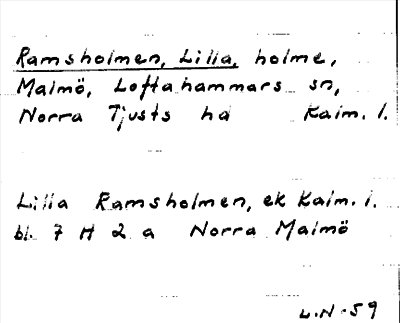 Ramsholmen, Lilla, holme,
Malmö, Loftahammars sn,
Norra Tjusts hd Kalm. l.
Lilla Ramsholmen, ek Kalm. l.
bl. 7 H 2 a Norra Malmö
L.N-59